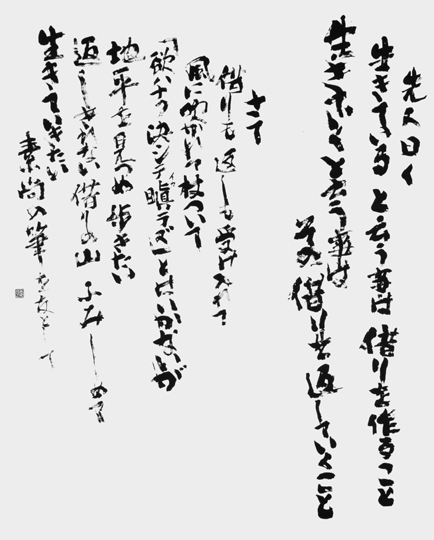 先人曰く
生きていると云う事は借りを作ること
生きていくと云う事は
その借りを返していくこと
さて
借りも返しも受け入れて
風に吹かれて杖ついて
「欲ハナク決シテ瞋ラズ」とはいかないが
地平を見つめ歩きたい
返しきれない借りの山ふみしめて
生きていきたい
の筆を友として